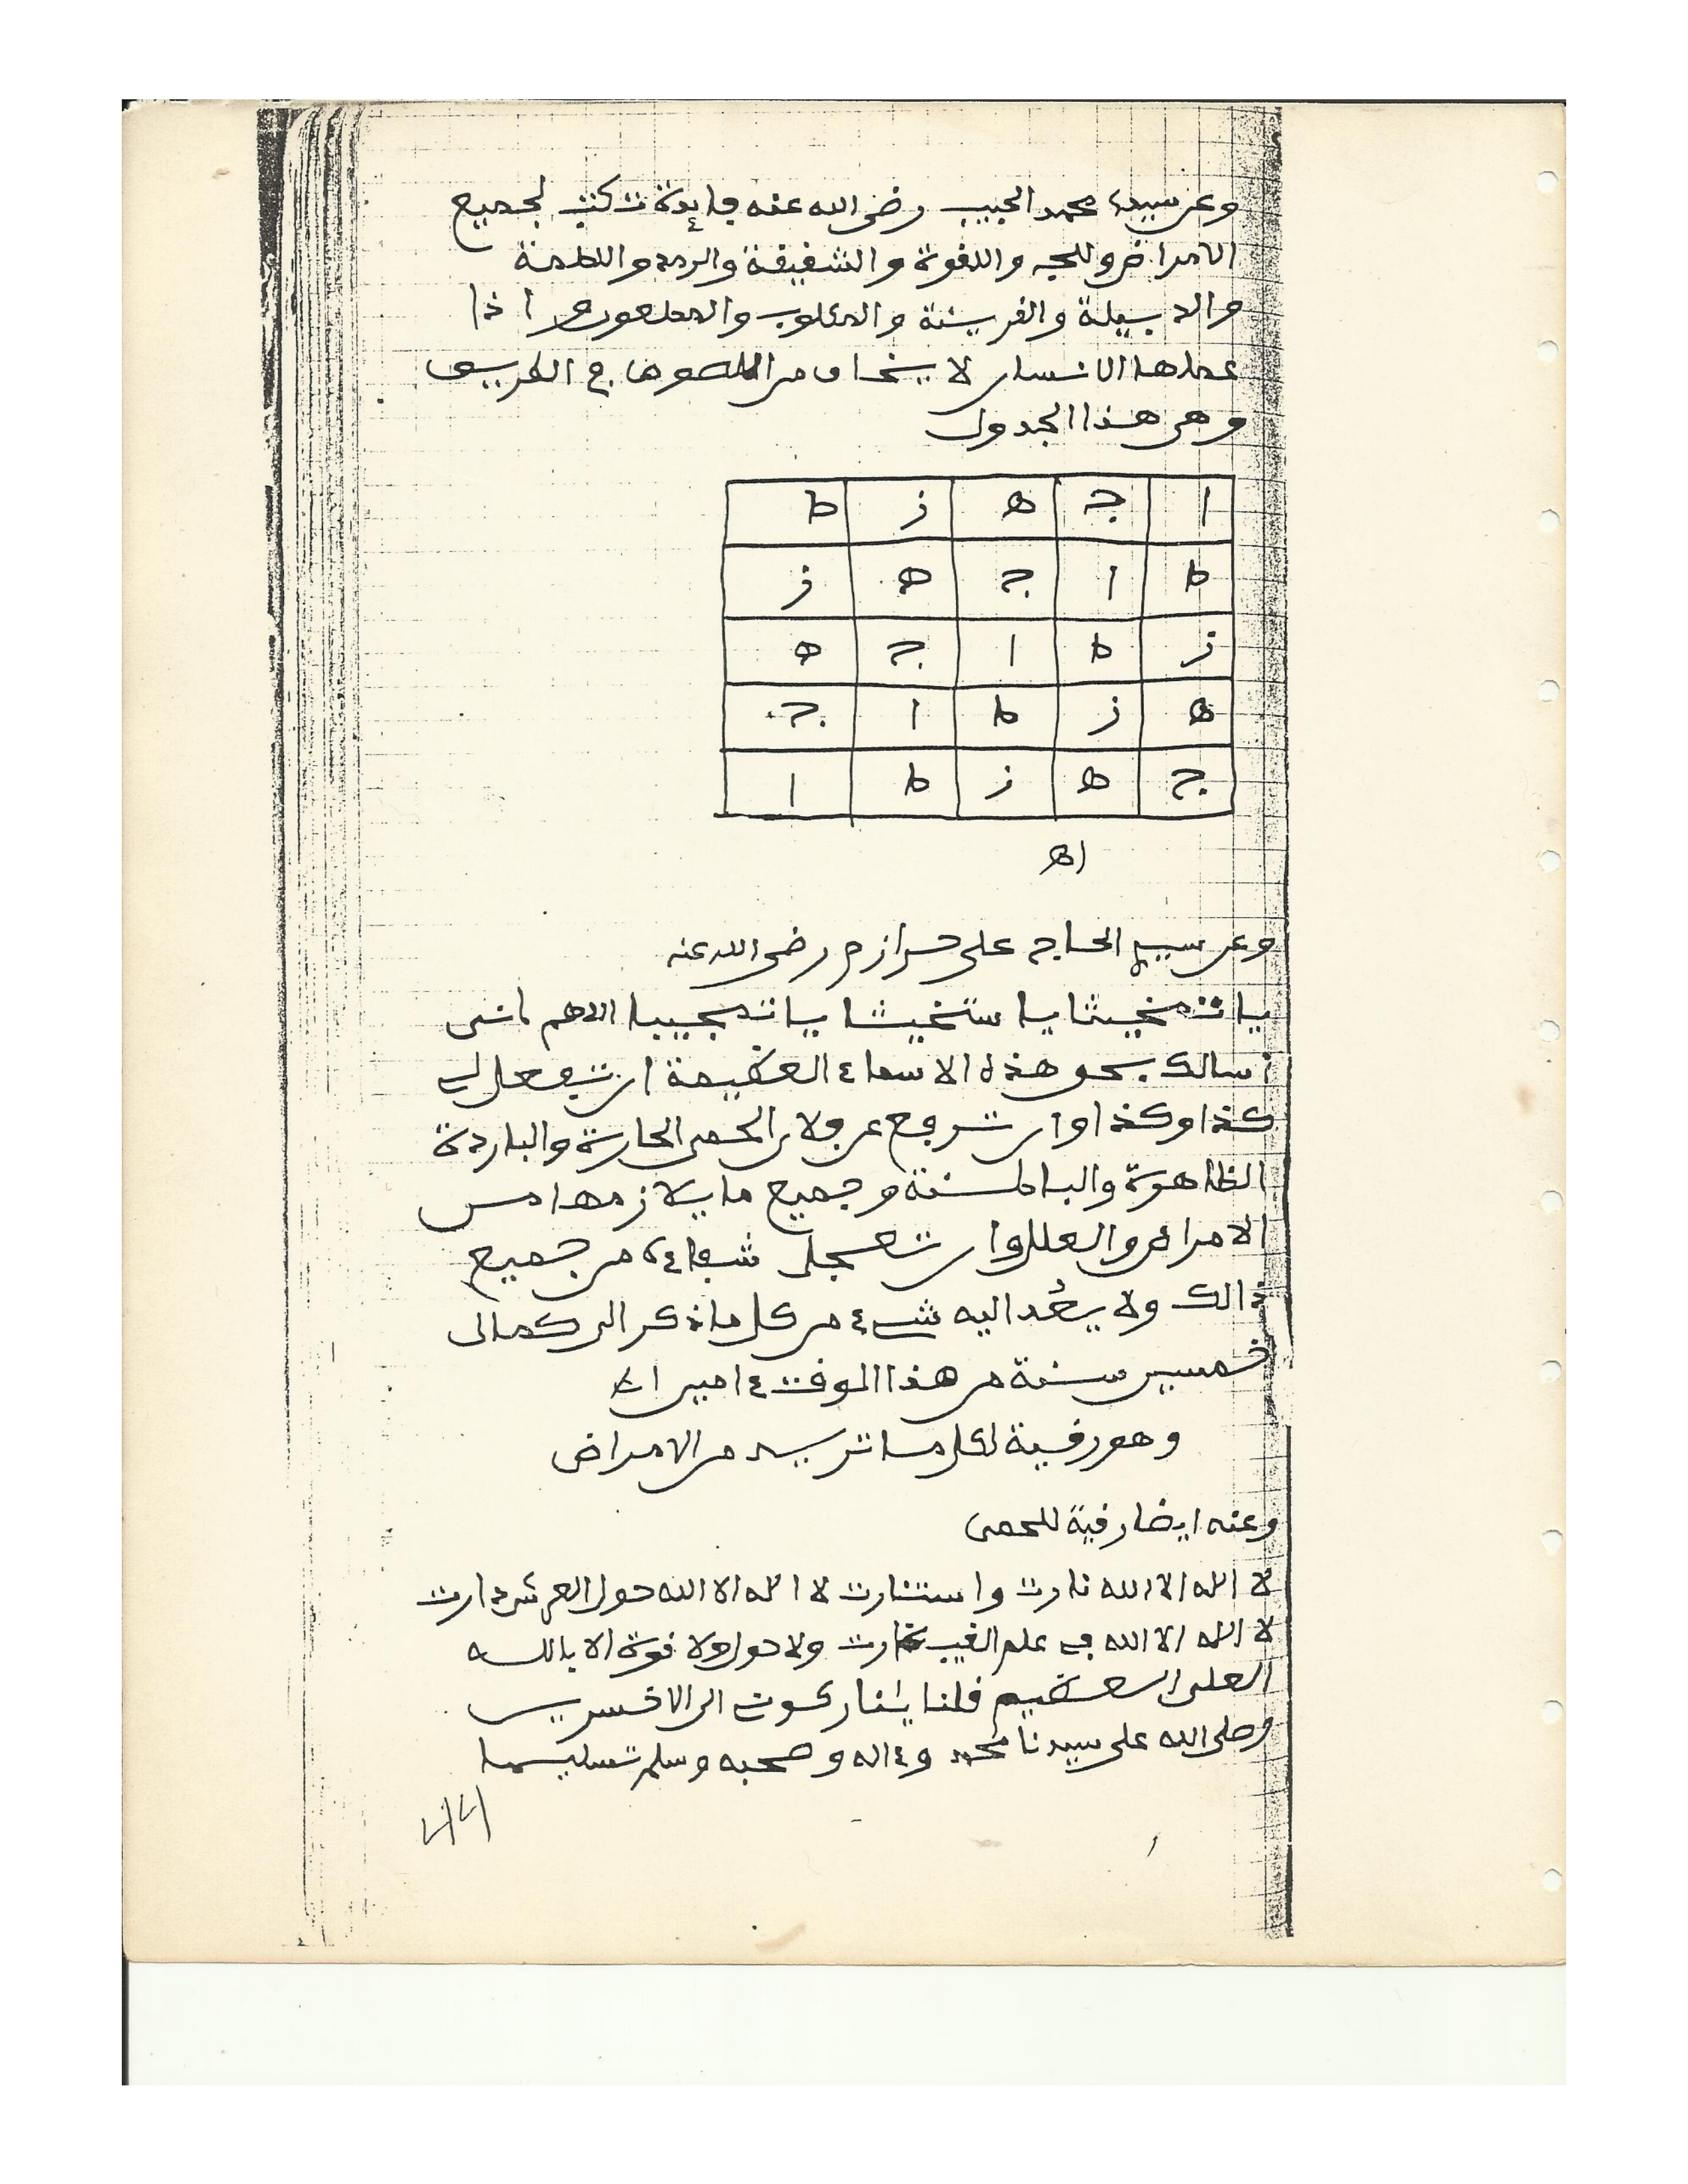 وعن سيدي محمد الحبيب رضي الله عنه فايدة تكتب لجميع
الامراض وللجن واللقوة والشقيقة والرمد واللطمة
والدبيلة والقرينة والمكلوب والمطعون و اذا
حملها الانسان لا يخاف من اللصوص في الطريق
وهي هذا الجدول
ا ج ه ز ط
ط ا ج ه ز
ز ط ا ج ه
ه ز ط ا ج
ج ه ز ط ا
اه
وعن سيدي الحاج علي حرازم رضي الله عنه
يا تمخيثا يا ستخيثا يا تمجيبا اللهم اني
اسالك بحق هذه الاسماء العظيمة ان تفعل لي
كذا وكذا وان ترفع عن فلان الحمى الحارة والباردة
الظاهرة والباطنة وجميع ما يلازمها من
الامراض والعلل وان تعجل شفاءه من جميع
ذالك ولا يعُد اليه شيء من كل ما ذكر الى كمال
خمسين سنة من هذا الوقت ءامين اه
وهو رقية لكل ما تريد من الامراض
وعنه ايضا رقية للحمى
لا اله الا الله نارت واستنارت لا اله الا الله حول العرش دارت
لا اله الا الله في علم الغيب غارت ولا حول ولا قوة الا بالله
العلي العظيم قلنا ينار كون الى الاخسرين
وصلى الله على سيدنا محمد وءاله وصحبه وسلم تسليما